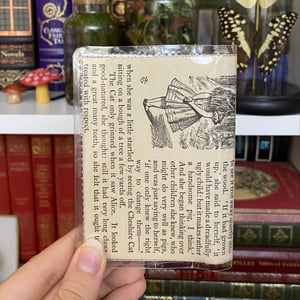 Novels
the wood. "If it had grown
up," she said to herself, "it
would have made a dreadfully
ugly child: but it makes rather
a handsome pig, I think."
And she began thinking over
other children she knew, who
might do very well as pigs,
and was just saying to herself,
"if one only knew the right
way to change them——"
when she was a little startled by seeing the Cheshire Cat
sitting on a bough of a tree a few yards off.
The Cat only grinned when it saw Alice. It looked
good-natured, she thought: still it had very long claws
and a great many teeth, so she felt that it ought
treated with respect.
THOMAS